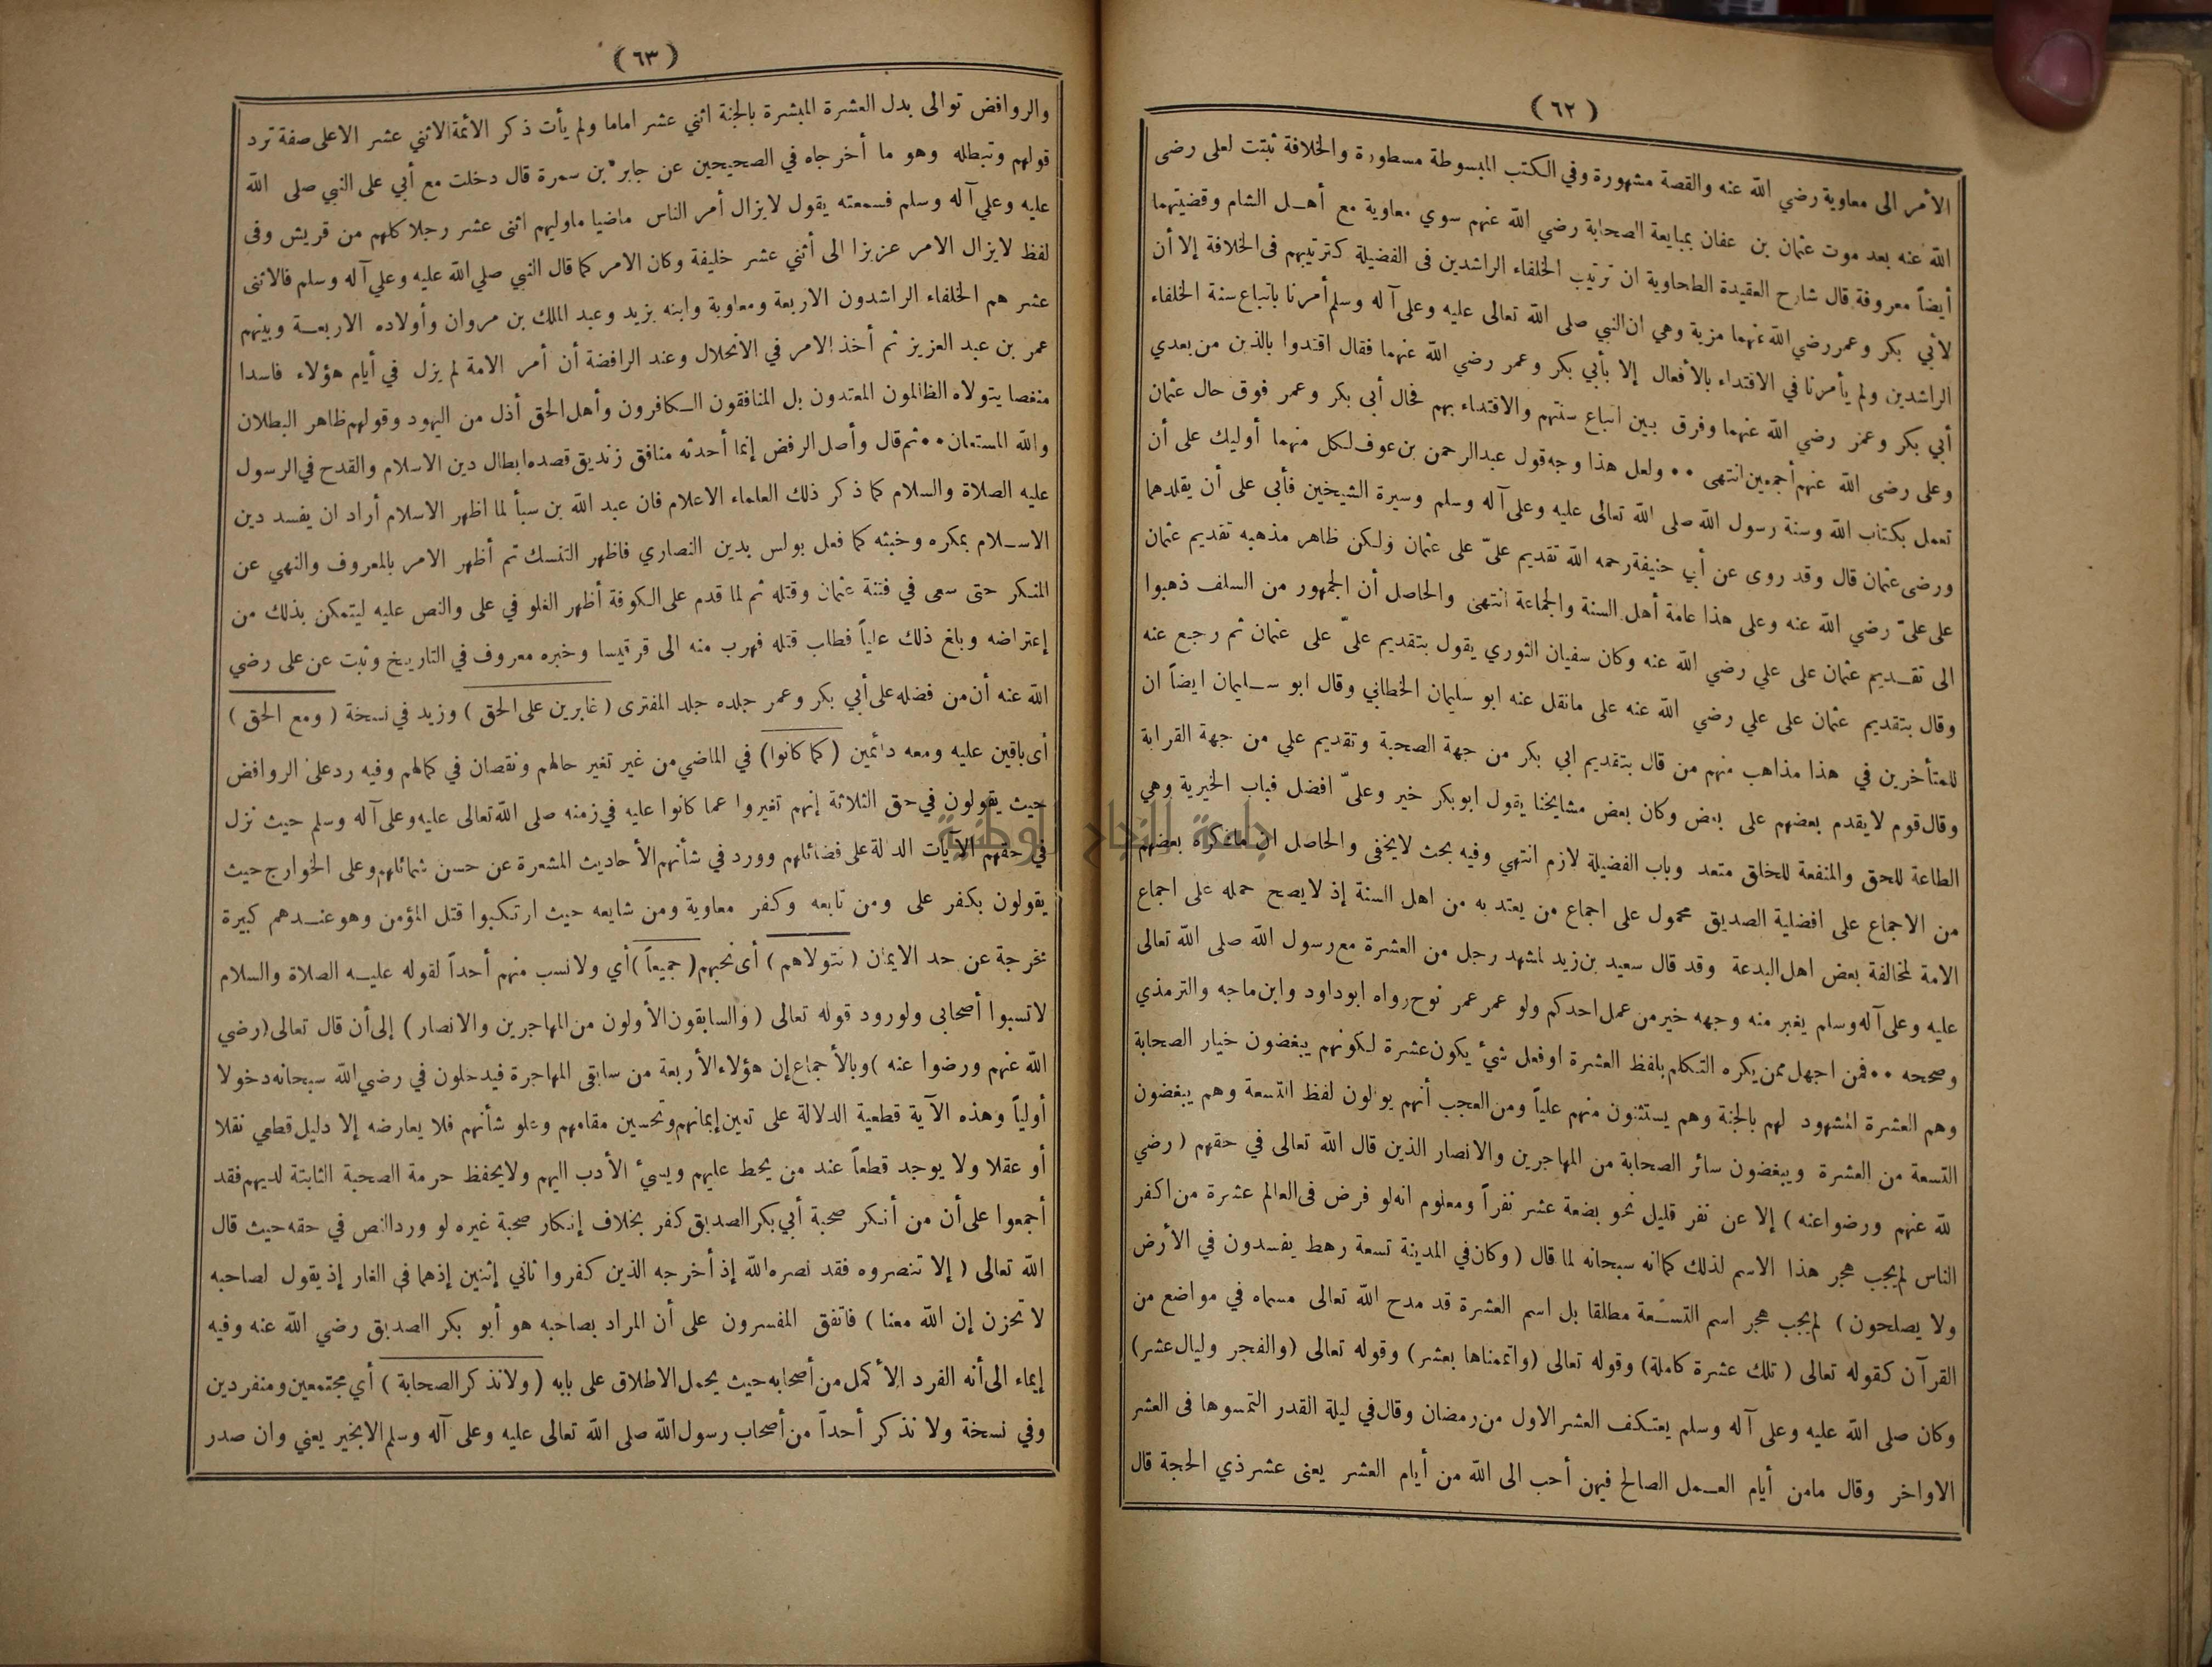 (٦٢)
الأمر الى معاوية رضي الله عنه والقصة مشهورة وفي الكتب المبسوطة مسطورة والخلافة ثبتت لعلى رضى
الله عنه بعد موت عثمان بن عفان بمبايعة الصحابة رضي الله عنهم سوي معاوية مع أهـل الشام وقضيتهما
أيضاً معروفة قال شارح العقيدة الطحاوية ان ترتيب الخلفاء الراشدين فى الفضيلة كترتيبهم فى الخلافة إلا أن
لأبي بكر وعمر رضي الله عنهما مزية وهي ان النبي صلى الله تعالى عليه وعلى آله وسلم أمرنا باتباع سنة الخلفاء
الراشدين ولم يأمرنا في الاقتداء بالأفعال إلا بأبي بكر وعمر رضي الله عنهما فقال اقتدوا بالذين من بعدي
أبي بكر وعمر رضي الله عنهما وفرق بين اتباع سنتهم والاقتداء بهم فحال أبي بكر وعمر فوق حال عثمان
وعلى رضى الله عنهم أجمعين انتهى ٠٠ ولعل هذا وجه قول عبدالرحمن بن عوف لكل منهما أوليك على أن
تعمل بكتاب الله وسنة رسول الله صلى الله تعالى عليه وعلى آله وسلم وسيرة الشيخين فأبى على أن يقلدهما
ورضى عثمان قال وقد روى عن أبي حنيفة رحمه الله تقديم علىّ على عثمان ولكن ظاهر مذهبه تقديم عثمان
على علىّ رضي الله عنه وعلى هذا عامة أهل السنة والجماعة انتهى والحاصل أن الجمهور من السلف ذهبوا
الى تقـديم عثمان على علي رضي الله عنه وكان سفيان الثوري يقول بتقديم علىّ على عثمان ثم رجع عنه
وقال بتقديم عثمان على علي رضي الله عنه على مانقل عنه ابو سليمان الخطابي وقال ابو سـليمان ايضاً ان
للمتأخرين في هذا مذاهب منهم من قال بتقديم ابي بكر من جهة الصحبة وتقديم علي من جهة القرابة
وقال قوم لا يقدم بعضهم على بعض وكان بعض مشايخنا يقول ابوبكر خير وعلىّ افضل فباب الخيرية وهي
الطاعة للحق والمنفعة للخلق متعد وباب الفضيلة لازم انتهي وفيه بحث لايخفى والحاصل ان ماذكره بعضهم
من الاجماع على افضلية الصديق محمول على اجماع من يعتد به من اهل السنة إذ لايصح حمله على اجماع
الامة لمخالفة بعض اهل البدعة وقد قال سعيد بن زيد لمشهد رجل من العشرة مع رسول الله صلى الله تعالى
عليه وعلى آله وسلم يغبر منه وجهه خير من عمل احدكم ولو عمر عمر نوح رواه ابوداود وابن ماجه والترمذي
وصححه ٠٠ فمن اجهل ممن يكره التكلم بلفظ العشرة او فعل شيء يكون عشرة لكونهم يبغضون خيار الصحابة
وهم العشرة المشهود لهم بالجنة وهم يستثنون منهم علياً ومن العجب أنهم يوالون لفظ التسعة وهم يبغضون
التسعة من العشرة ويبغضون سائر الصحابة من المهاجرين والانصار الذين قال الله تعالى في حقهم (رضي
لله عنهم ورضوا عنه) إلا عن نفر قليل نحو بضعة عشر نفراً ومعلوم انه لو فرض فى العالم عشرة من اكفر
الناس لم يجب هجر هذا الاسم لذلك كما انه سبحانه لما قال (وكان في المدينة تسعة رهط يفسدون في الأرض
ولا يصلحون) لم يجب هجر اسم التسـعة مطلقا بل اسم العشرة قد مدح الله تعالى مسماه في مواضع من
القرآن كقوله تعالى (تلك عشرة كاملة) وقوله تعالى (واتممناها بعشر) وقوله تعالى (والفجر وليال عشر)
وكان صلى الله عليه وعلى آله وسلم يعتكف العشر الاول من رمضان وقال في ليلة القدر التمسوها فى العشر
الاواخر وقال مامن أيام العـمل الصالح فيهن أحب الى الله من أيام العشر يعنى عشر ذي الحجة قال
(٦٣)
والروافض توالى بدل العشرة المبشرة بالجنة اثني عشر اماما ولم يأت ذكر الائمة الاثني عشر الا على صفة ترد
قولهم وتبطله وهو ما أخرجاه في الصحيحين عن جابر بن سمرة قال دخلت مع أبي على النبي صلى الله
عليه وعلى آله وسلم فسمعته يقول لايزال أمر الناس ماضيا ماوليهم اثنى عشر رجلا كلهم من قريش وفى
لفظ لايزال الامر عزيزا الى أثني عشر خليفة وكان الامر كما قال النبي صلي الله عليه وعلي آله وسلم فالاثنى
عشر هم الخلفاء الراشدون الاربعة ومعاوية وابنه يزيد وعبد الملك بن مروان وأولاده الاربعـة وبينهم
عمر بن عبد العزيز ثم أخذ الامر في الانحلال وعند الرافضة أن أمر الامة لم يزل في أيام هؤلاء فاسدا
منغصا يتولاه الظالمون المعتدون بل المنافقون الـكافرون وأهل الحق أذل من اليهود وقولهم ظاهر البطلان
والله المستعان ٠٠ ثم قال وأصل الرفض إنما أحدثه منافق زنديق قصده ابطال دين الاسلام والقدح في الرسول
عليه الصلاة والسلام كما ذكر ذلك العلماء الاعلام فان عبد الله بن سبأ لما اظهر الاسلام أراد ان يفسد دين
الاسـلام بمكره وخبثه كما فعل بولس بدين النصاري فاظهر التنسك ثم أظهر الامر بالمعروف والنهي عن
المنكر حتى سعى في فتنة عثمان وقتله ثم لما قدم على الكوفة أظهر الغلو في على والنص عليه ليتمكن بذلك من
إعتراضه وبلغ ذلك علياً فطلب قتله فهرب منه الى قرقيسا وخبره معروف في التاريخ وثبت عن على رضي
الله عنه أن من فضله على أبي بكر وعمر جلده جلد المفترى (غابرين على الحق) وزيد في نسخة (ومع الحق)
أى باقين عليه ومعه دائمين (كما كانوا) في الماضي من غير تغير حالهم ونقصان في كمالهم وفيه رد على الروافض
حيث يقولون في حق الثلاثة إنهم تغيروا عما كانوا عليه في زمنه صلى الله تعالى عليه وعلى آله وسلم حيث نزل
في حقهم الآيات الدالة على فضائلهم وورد في شأنهم الأحاديث المشعرة عن حسن شمائلهم وعلى الخوارج حيث
يقولون بكفر على ومن تابعه وكفر معاوية ومن شايعه حيث ارتكبوا قتل المؤمن وهو عنـدهم كبيرة
مخرجة عن حد الايمان (نتولاهم) أى نحبهم (جميعاً) أي ولا نسب منهم أحداً لقوله عليـه الصلاة والسلام
لا تسبوا أصحابى ولورود قوله تعالى (والسابقون الأولون من المهاجرين والانصار) إلى أن قال تعالى (رضي
الله عنهم ورضوا عنه) وبالأجماع إن هؤلاء الأربعة من سابقى المهاجرة فيدخلون في رضي الله سبحانه دخولا
أولياً وهذه الآية قطعية الدلالة على تعين إيمانهم وتحسين مقامهم وعلو شأنهم فلا يعارضه إلا دليل قطعي نقلا
أو عقلا ولا يوجد قطعاً عند من يحط عليهم ويسيء الأدب اليهم ولا يحفظ حرمة الصحبة الثابتة لديهم فقد
أجمعوا على أن من أنكر صحبة أبي بكر الصديق كفر بخلاف إنكار صحبة غيره لو ورد النص في حقه حيث قال
الله تعالى (إلا تنصروه فقد نصره الله إذ أخرجه الذين كفروا ثاني إثنين إذهما فى الغار إذ يقول لصاحبه
لا تحزن إن الله معنا) فاتفق المفسرون على أن المراد بصاحبه هو أبو بكر الصديق رضي الله عنه وفيه
إيماء الى أنه الفرد الأكمل من أصحابه حيث يحمل الاطلاق على بابه (ولا نذكر الصحابة) أي مجتمعين ومنفردين
وفي نسخة ولا نذكر أحداً من أصحاب رسول الله صلى الله تعالى عليه وعلى آله وسلم الا بخير يعني وان صدر
جامعة النجاح الوطنية